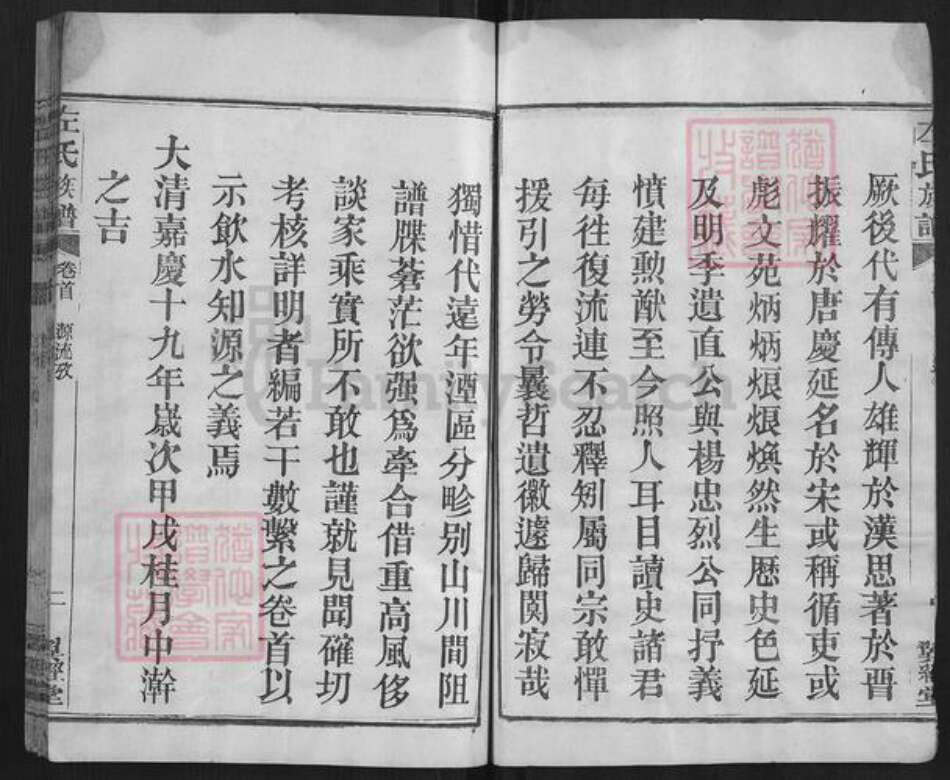 厥後代有傳人雄輝於漢思著於晉
振耀於唐慶延名於宋或稱循吏或
彪文苑炳炳烺烺煥然生歷史色延
及明季遺直公與楊忠烈公同抒義
憤建勲猷至今照人耳目讀史諸君
每徃復流連不忍釋矧屬同宗敢憚
援引之勞令曩哲遺徽遽歸闃寂哉
獨惜代遠年湮區分畛别山川間阻
譜牒蒼茫欲强爲牽合借重高風侈
談家乘實所不敢也謹就見聞確切
考核詳明者編若干數繫之卷首以
示飲水知源之義焉
大清嘉慶十九年嵗次甲戌桂月中澣
之吉
左氏族譜
卷首
源流攷
二
左氏族譜
FamilySearch